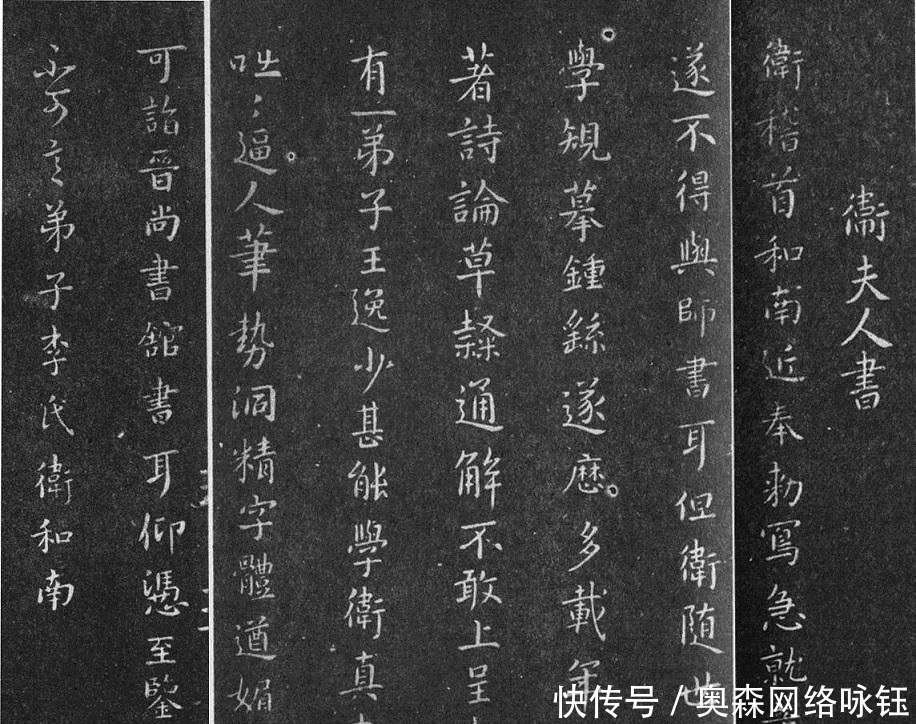 衞夫人書
衛稽首和南近奉勅寫急就
遂不得與師書耳但衛随世
學規摹鍾繇遂歷多載年
著詩論草隸通解不敢上呈
有一弟子王逸少甚能學衛真
咄〻逼人筆勢洞精字體遒媚
可詣晉尚書舘書耳仰憑至鑒
弟子李氏衛和南
快传号/奥森网络咏钰